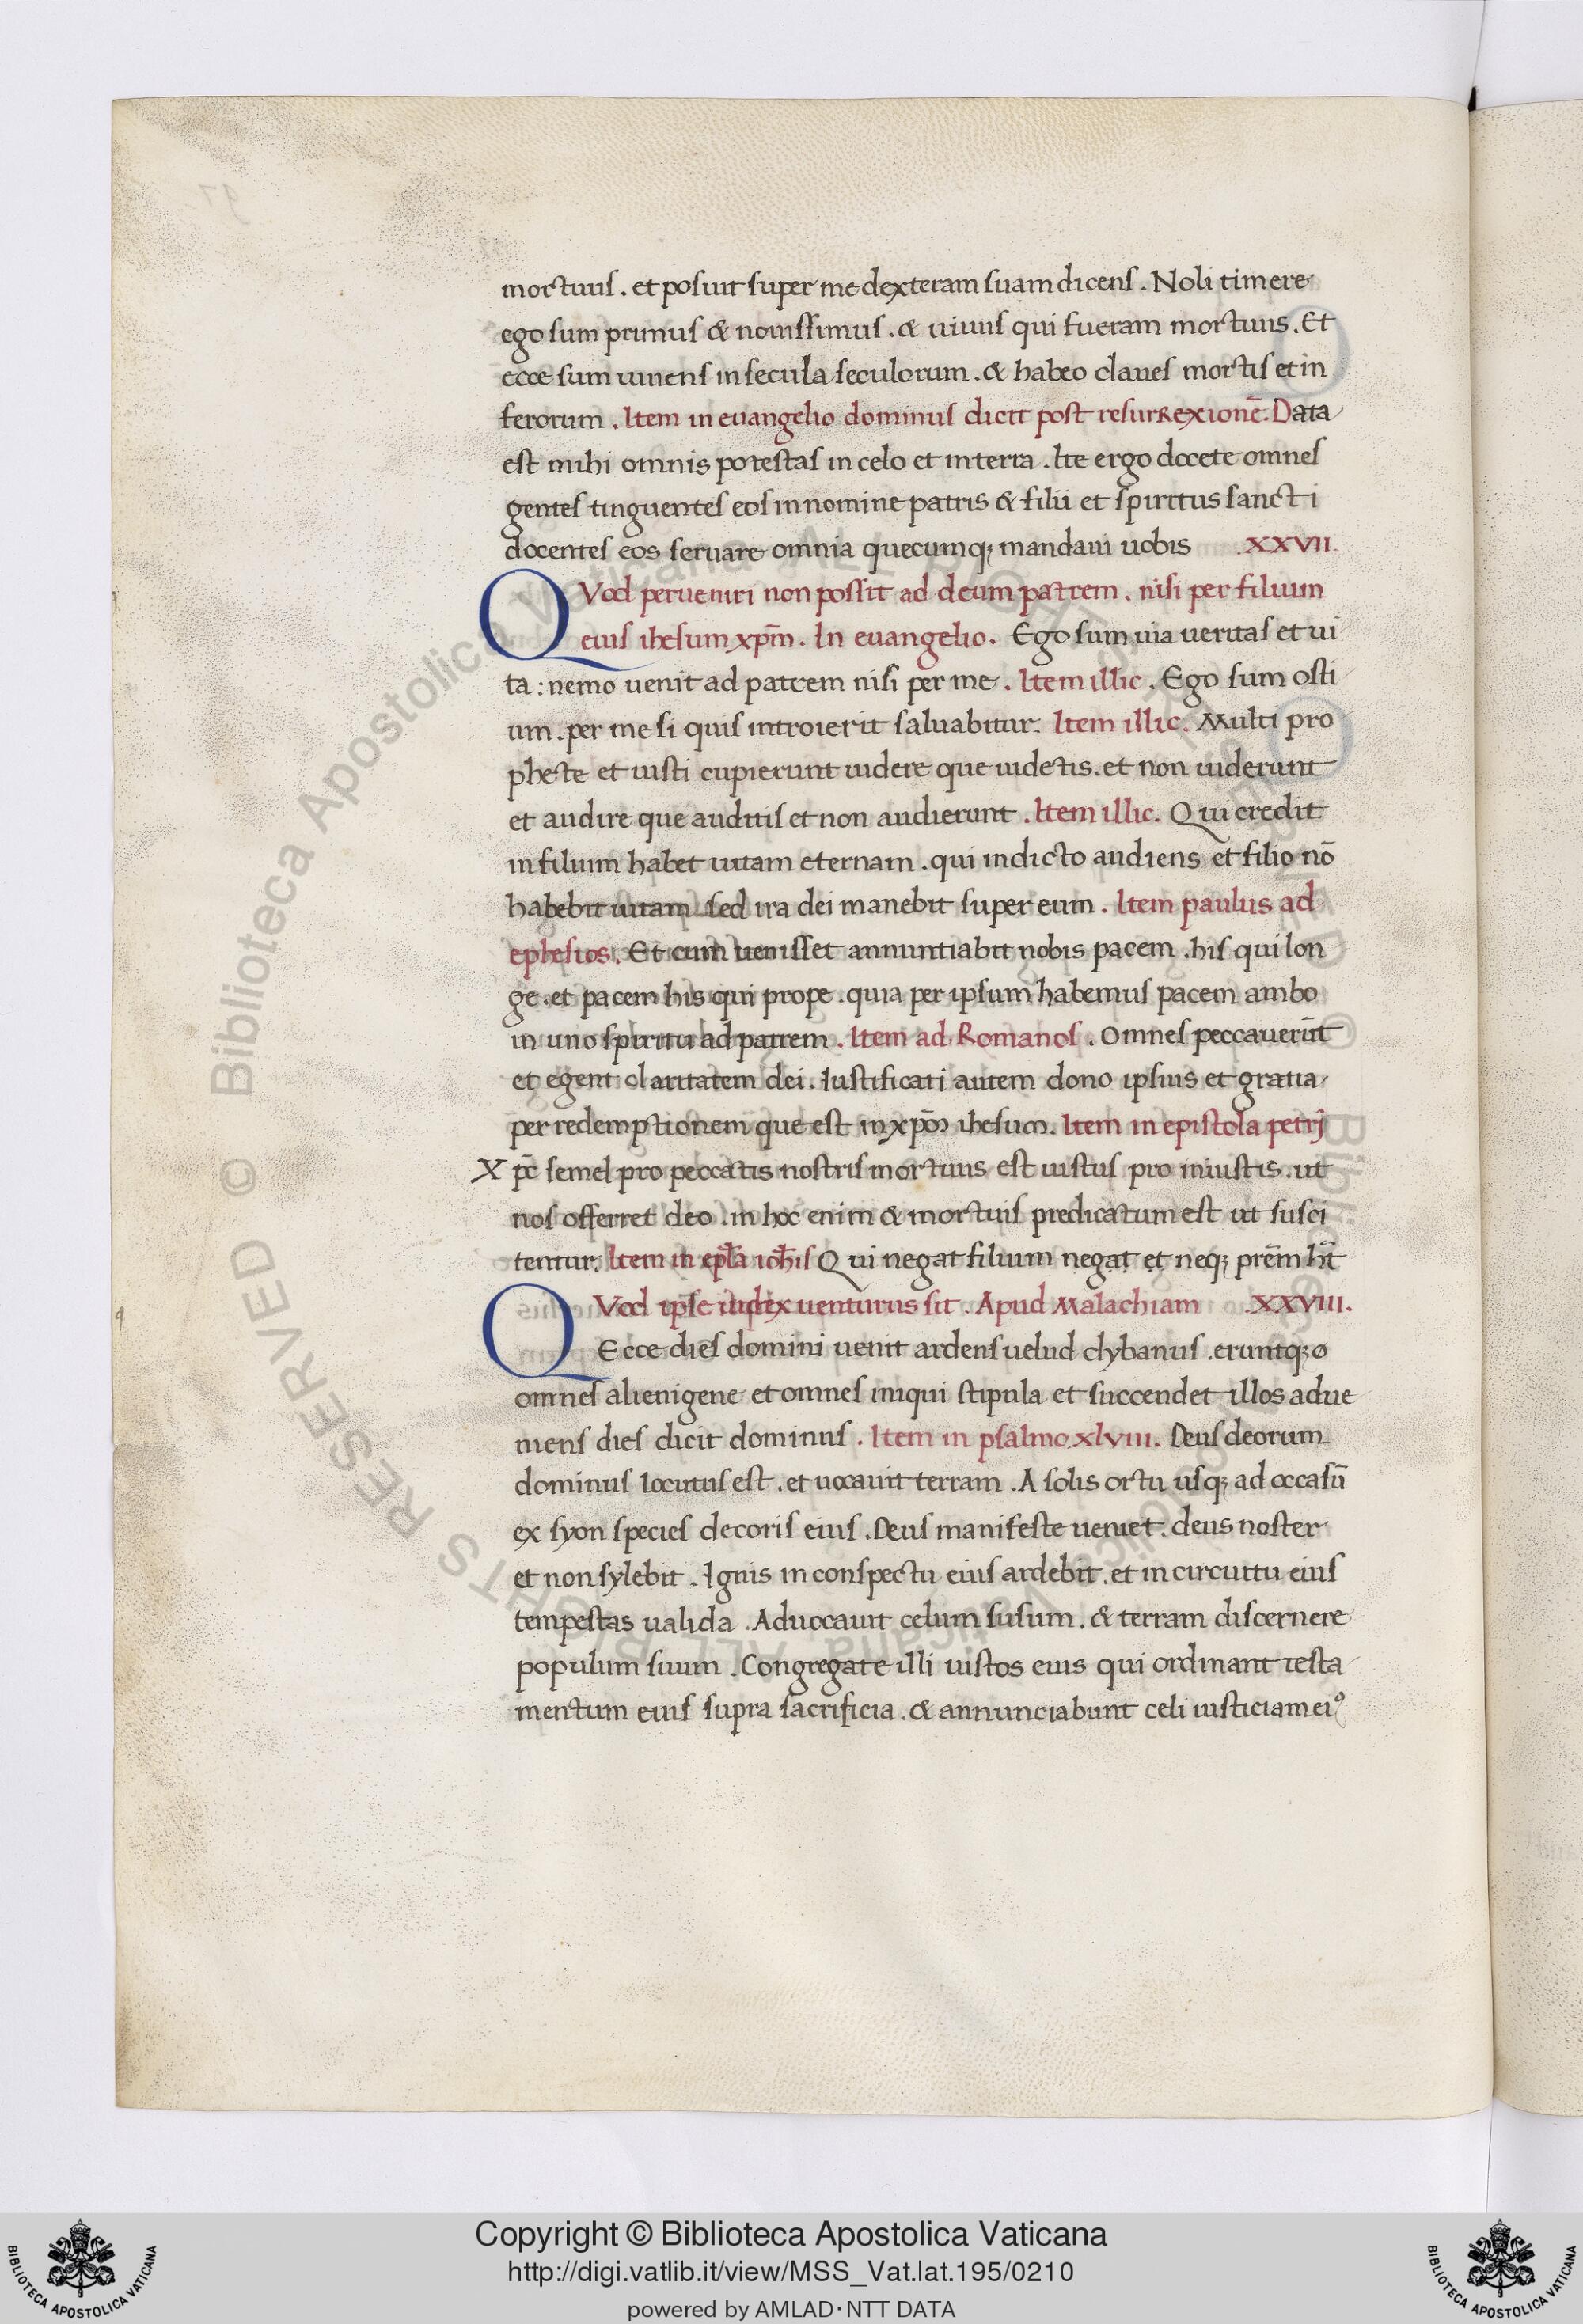 mortuus . et posuit super me dexteram suam dicens . Noli timere
ego sum primus & nouissimus . & uiuus qui fueram mortuus . Et
ecce sum uiuens in secula seculorum . & habeo claues mortis et in
ferorum . Item in euangelio dominus dicit post resurrexionē . Data
est mihi omnis potestas in celo et in terra . Ite ergo docete omnes
gentes tinguentes eos in nomine patris & filii et spiritus sancti
docentes eos seruare omnia quecumq; mandaui uobis .XXVII.
QVod perueniri non possit ad deum patrem . nisi per filium
eius ihesum xp̄m . In euangelio . Ego sum uia ueritas et ui
ta : nemo uenit ad patrem nisi per me . Item illic . Ego sum osti
um . per me si quis introierit saluabitur . Item illic . Multi pro
phete et iusti cupierunt uidere que uidetis . et non uiderunt
et audire que auditis et non audierunt . Item illic . Qui credit
in filium habet uitam eternam . qui indicto audiens et filio nō
habebit uitam sed ira dei manebit super eum . Item paulus ad
ephesios . Et cum uenisset annuntiabit nobis pacem . his qui lon
ge . et pacem his qui prope . quia per ipsum habemus pacem ambo
in uno spiritu ad patrem . Item ad Romanos . Omnes peccauerūt
et egent claritatem dei . Iustificati autem dono ipsius et gratia
per redemptionem que est in xp̄o ihesum . Item in epistola petrj
Xp̄c semel pro peccatis nostris mortuus est iustus pro iniustis . ut
nos offerret deo . in hoc enim & mortuis predicatum est ut susci
tentur . Item in ep̄la ioh̄is Qui negat filium negat et neq; prēm h̄t
QVod ipse iudex uenturus sit . Apud Malachiam .XXVIII.
Ecce dies domini uenit ardens uelud clybanus . eruntq; o
omnes alienigene et omnes iniqui stipula et succendet illos adue
niens dies dicit dominus . Item in psalmo xlviii . Deus deorum
dominus locutus est . et uocauit terram . A solis ortu usq; ad occasū
ex syon species decoris eius . Deus manifeste ueniet . deus noster
et non sylebit . Ignis in conspectu eius ardebit . et in circuitu eius
tempestas ualida . Aduocauit celum susum . & terram discernere
populum suum . Congregate illi iustos eius qui ordinant testa
mentum eius supra sacrificia . & annunciabunt celi iusticiam eiꝰ
© Biblioteca Apostolica Vaticana ALL RIGHTS RESERVED
Copyright © Biblioteca Apostolica Vaticana
http://digi.vatlib.it/view/MSS_Vat.lat.195/0210
powered by AMLAD·NTT DATA
BIBLIOTECA APOSTOLICA VATICANA
BIBLIOTECA APOSTOLICA VATICANA